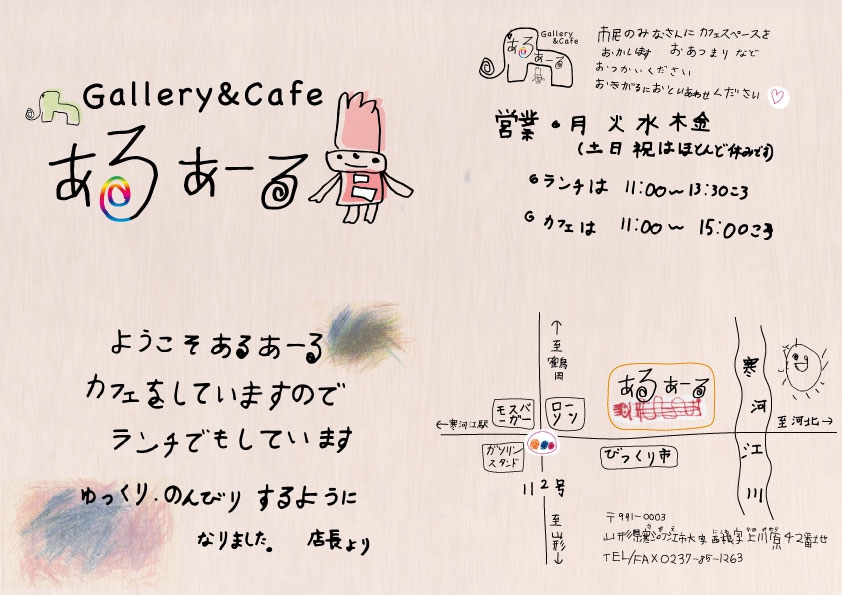 Gallery&Cafe
ある あーる
ようこそ あるあーる
カフェをしていますので
ランチでもしています
ゆっくり.のんびり するように
なりました。 店長より
Gallery
&Cafe
ある あーる
市民のみなさんに カフェスペースを
おかします おあつまり など
おつかいください
おきがるにおといあわせください
営業・月 火 水 木 金
(土 日 祝はほとんど休みです)
ランチは 11:00〜13:30ころ
カフェは 11:00〜 15:00ころ
↑至鶴岡
モスバーガー
ローソン
ある あーる
寒河江川
至河北→
←寒河江駅
ガソリンスタンド
びっくり市
112号
至山形↓
〒991-0003
さがえ にしね かみがわら
山形県寒河江市大字西根字上川原42番地
TEL/FAX0237-85-1263